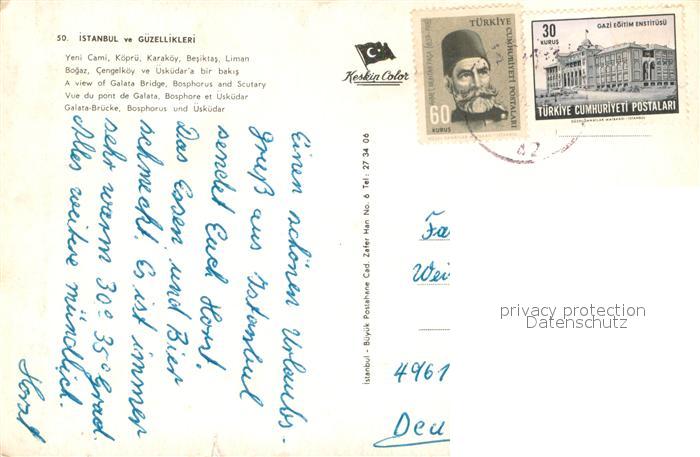 50. İSTANBUL ve GÜZELLİKLERİ
Yeni Cami, Köprü, Karaköy, Beşiktaş, Liman
Boğaz, Çengelköy ve Üsküdar'a bir bakış
A view of Galata Bridge, Bosphorus and Scutary
Vue du pont de Galata, Bosphore et Usküdar
Galata-Brücke, Bosphorus und Usküdar
Keskin Color
TÜRKİYE
CUMHURİYETİ POSTALARI
60
KURUŞ
30
KURUŞ
GAZİ EĞİTİM ENSTİTÜSÜ
TÜRKİYE CUMHURİYETİ POSTALARI
Einen schönen Urlaubs-
gruß aus Istanbul
sendet Euch Horst.
Das Essen und Bier
schmeckt. Es ist immer
sehr warm 30° 35° Grad.
Alles weitere mündlich.
Horst
İstanbul - Büyük Postahâne Cad. Zafer Han No. 6 Tel: 27 34 06
Fa
Wei
4961
Deu
privacy protection
Datenschutz